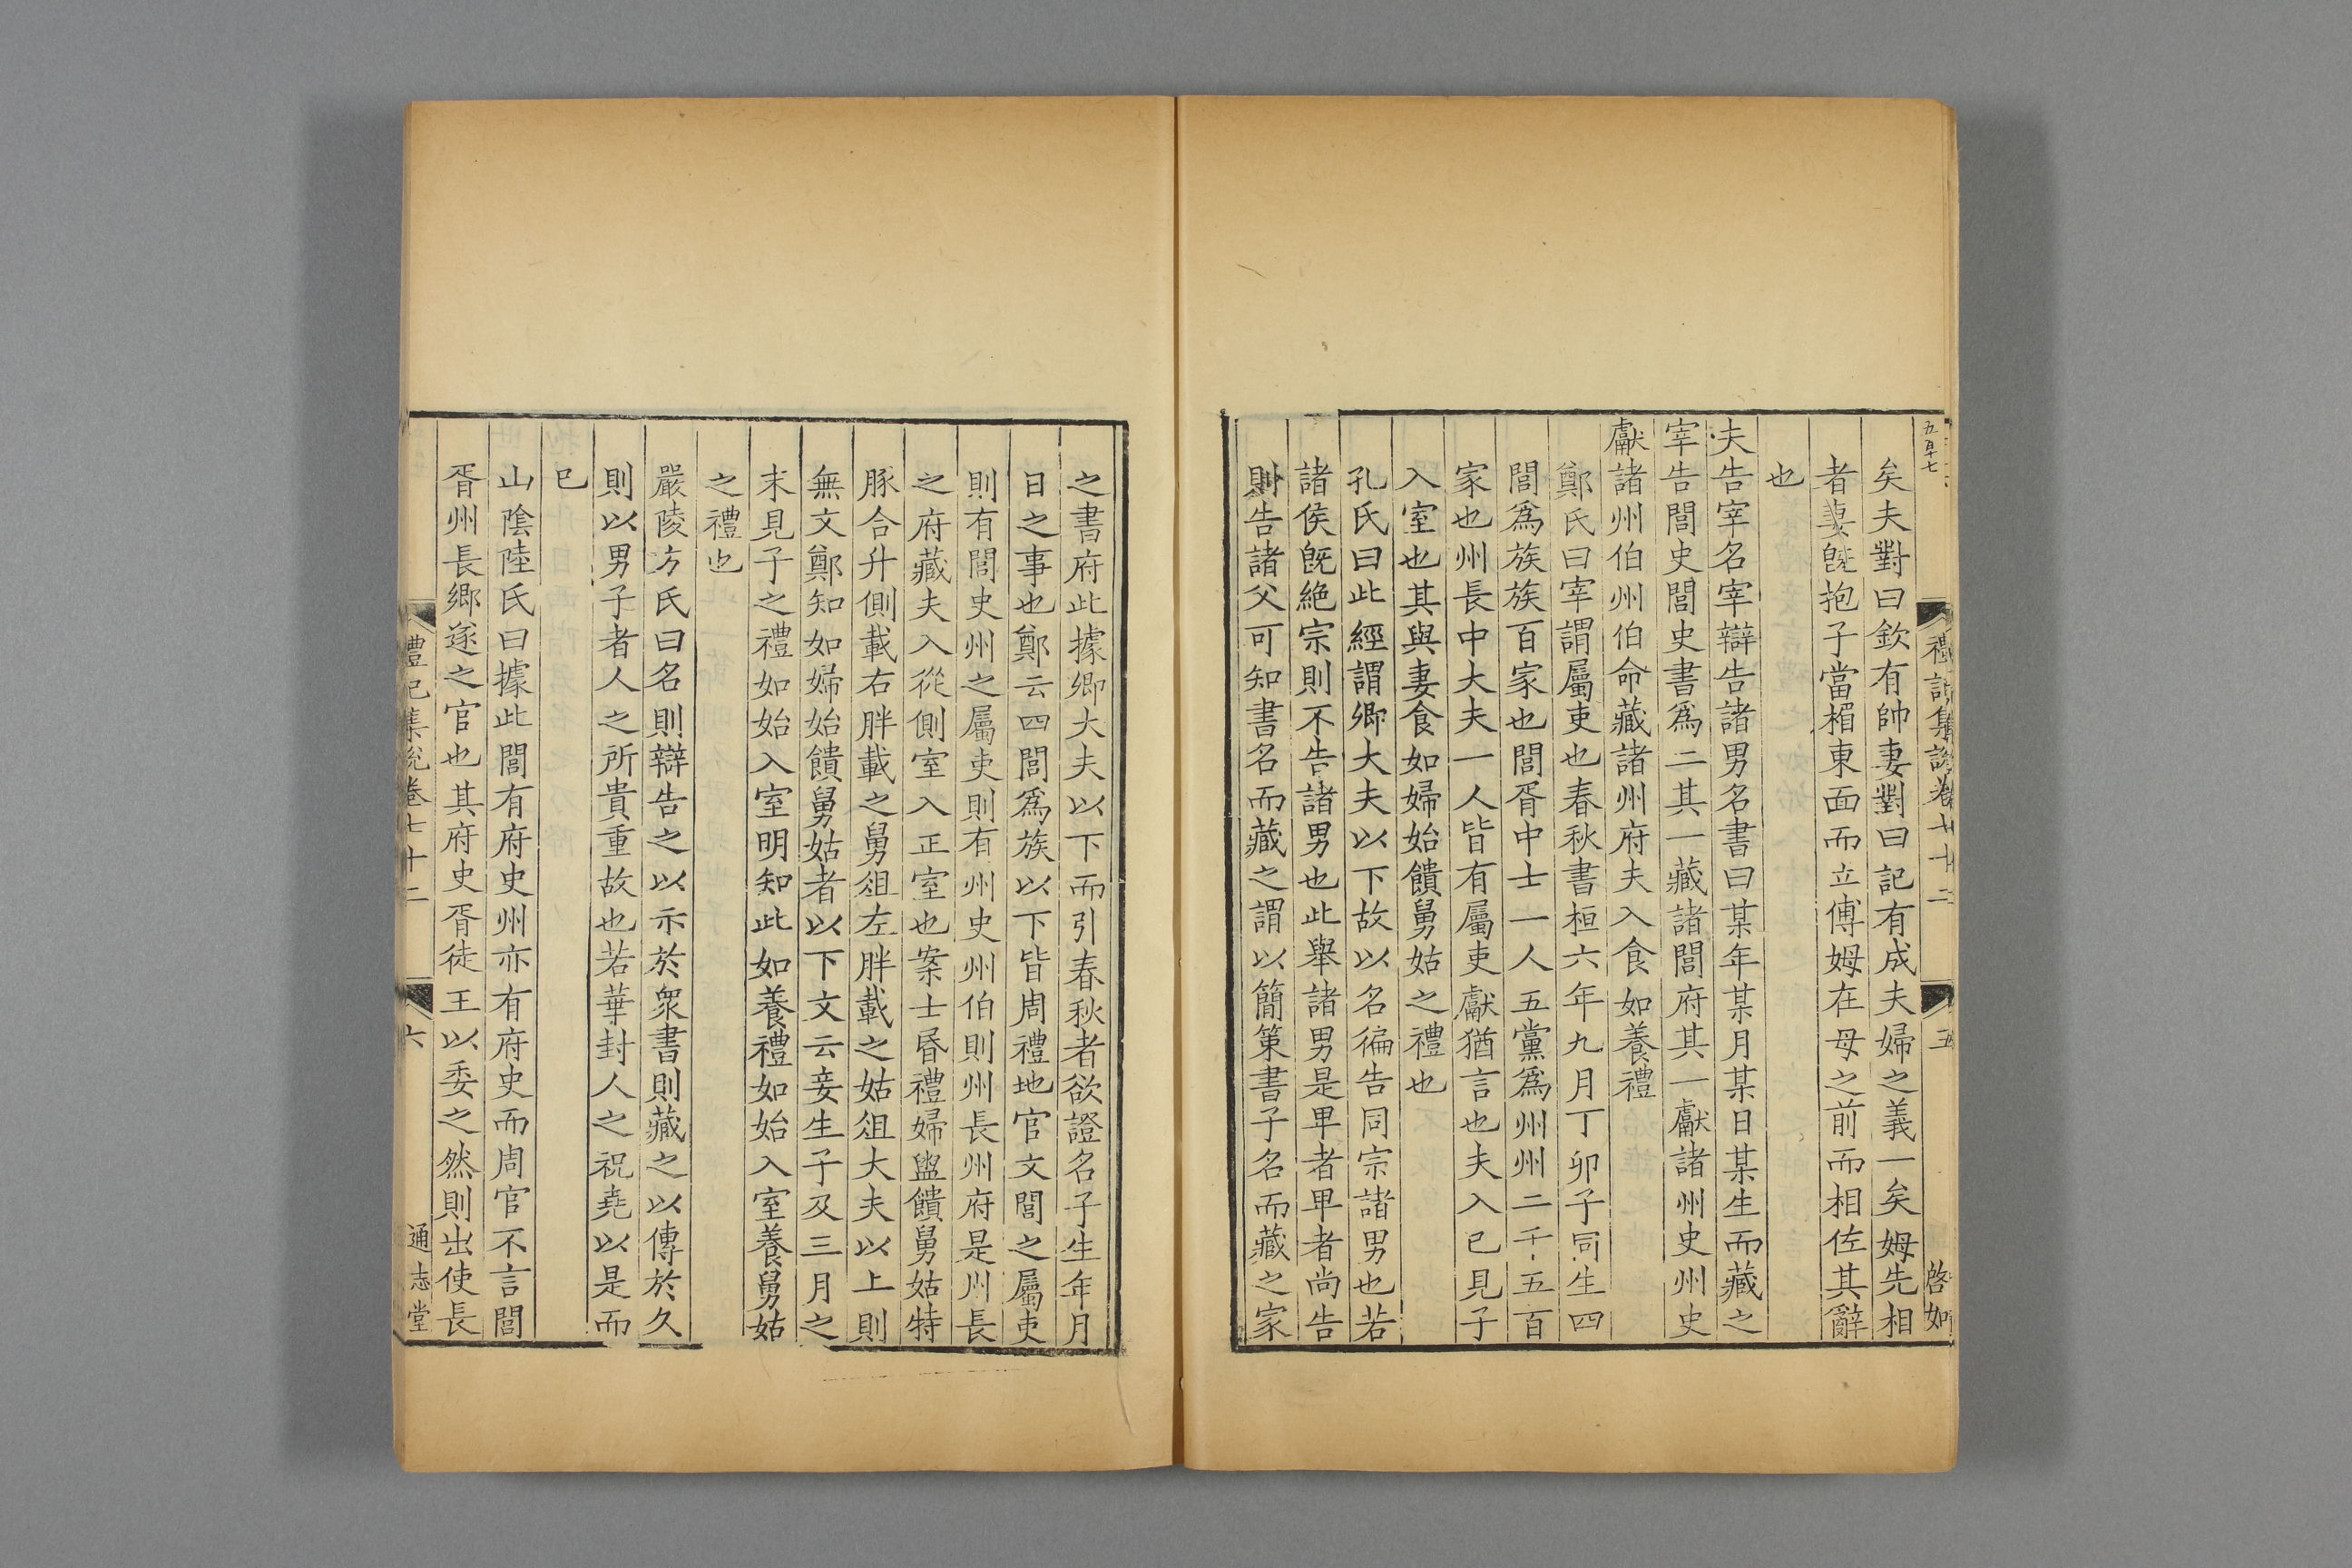 五百十七
禮記集說卷七十二
五
啓如
矣夫對曰欽有帥妻對曰記有成夫婦之義一矣姆先相
者妻旣抱子當楣東面而立傅姆在母之前而相佐其辭
也
夫告宰名宰辯告諸男名書曰某年某月某日某生而藏之
宰告閭史閭史書爲二其一藏諸閭府其一獻諸州史州史
獻諸州伯州伯命藏諸州府夫入食如養禮
鄭氏曰宰謂屬吏也春秋書桓六年九月丁卯子同生四
閭爲族族百家也閭胥中士一人五黨爲州州二千五百
家也州長中大夫一人皆有屬吏獻猶言也夫入已見子
入室也其與妻食如婦始饋舅姑之禮也
孔氏曰此經謂卿大夫以下故以名徧告同宗諸男也若
諸侯旣絶宗則不告諸男也此舉諸男是卑者卑者尚告
則告諸父可知書名而藏之謂以簡策書子名而藏之家
之書府此據卿大夫以下而引春秋者欲證名子生年月
日之事也鄭云四閭爲族以下皆周禮地官文閭之屬吏
則有閭史州之屬吏則有州史州伯則州長州府是州長
之府藏夫入從側室入正室也案士昏禮婦盥饋舅姑特
豚合升側載右胖載之舅俎左胖載之姑俎大夫以上則
無文鄭知如婦始饋舅姑者以下文云妾生子及三月之
末見子之禮如始入室明知此如養禮如始入室養舅姑
之禮也
嚴陵方氏曰名則辯告之以示於衆書則藏之以傳於久
則以男子者人之所貴重故也若華封人之祝堯以是而
巳
山陰陸氏曰據此閭有府史州亦有府史而周官不言閭
胥州長鄉遂之官也其府史胥徒王以委之然則出使長
禮記集說卷七十二
六
通志堂